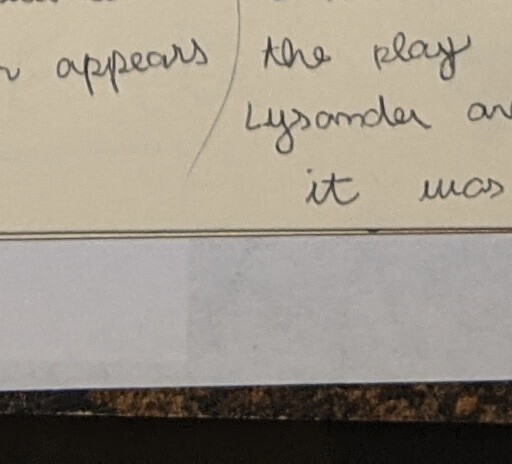 appears
the play
Lysander
it was